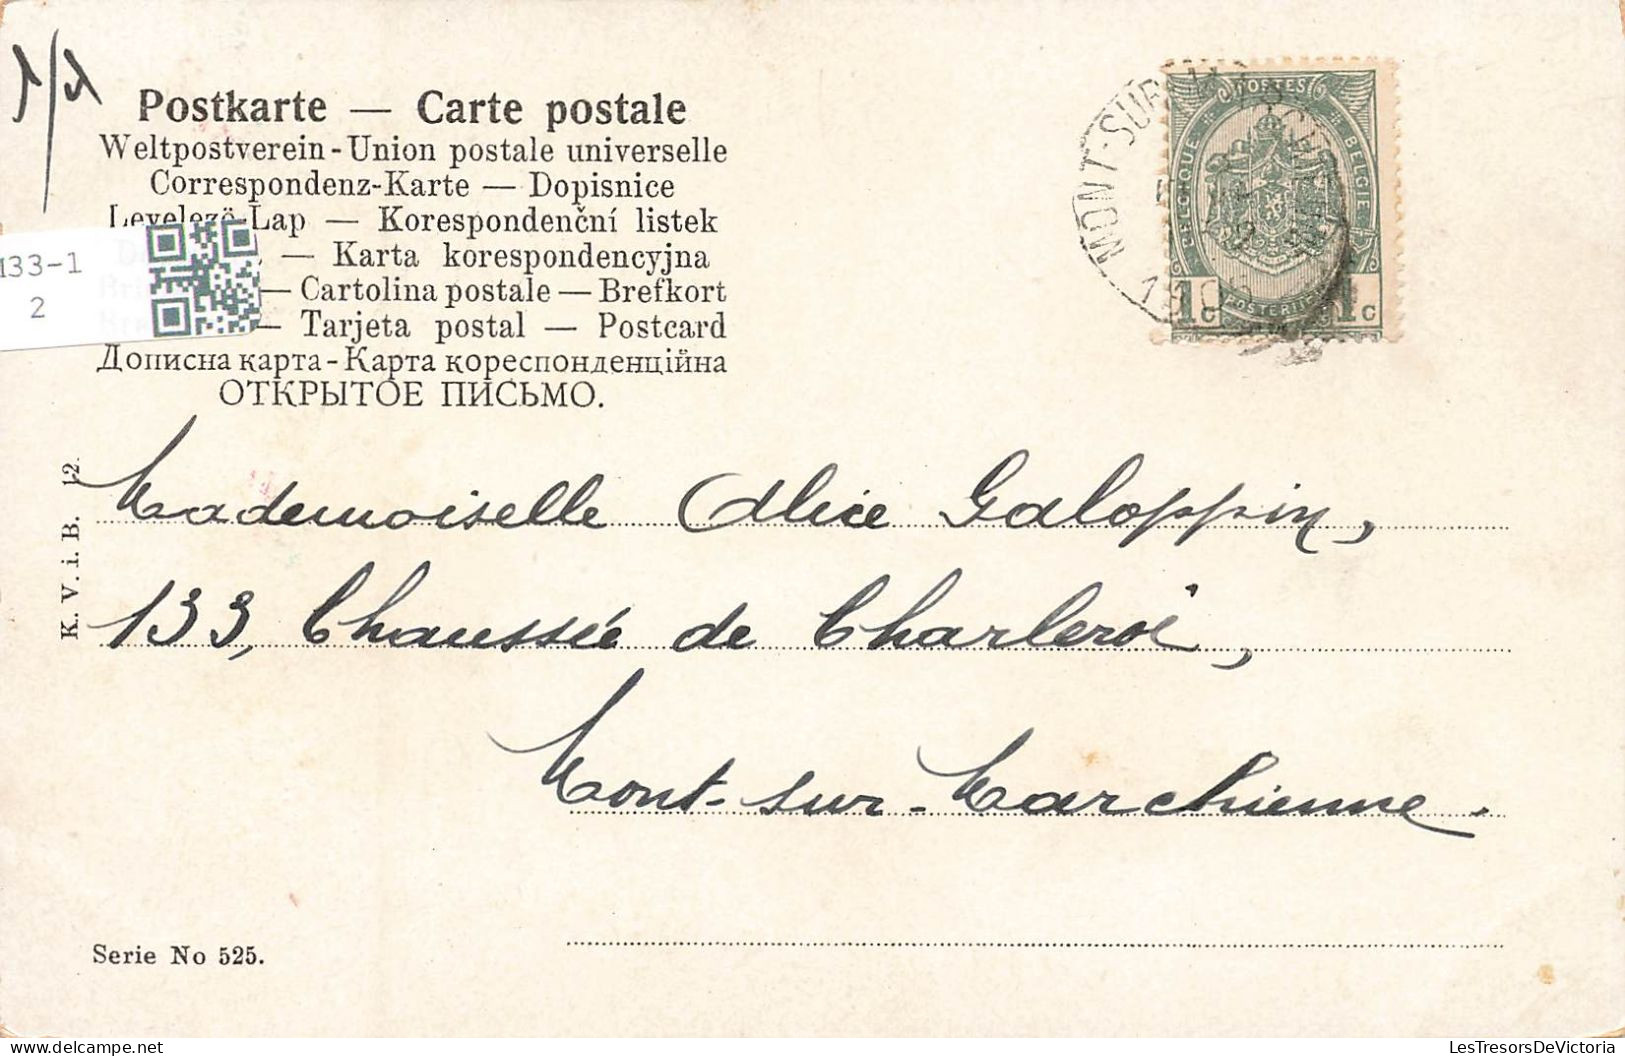 Postkarte — Carte postale
Weltpostverein - Union postale universelle
Correspondenz-Karte — Dopisnice
Levelező-Lap — Korespondenční listek
— Karta korespondencyjna
— Cartolina postale — Brefkort
— Tarjeta postal — Postcard
Дописна карта - Карта кореспонденційна
ОТКРЫТОЕ ПИСЬМО.
133-1
2
POSTES
BELGIQUE BELGIË
POSTERIJEN
1c 1c
MONT-SUR-MARCHIENNE
K. V. i. B. 12.
Mademoiselle Alice Galoppin,
133, Chaussée de Charleroi,
Mont-sur-Marchienne.
Serie No 525.
LesTresorsDeVictoria